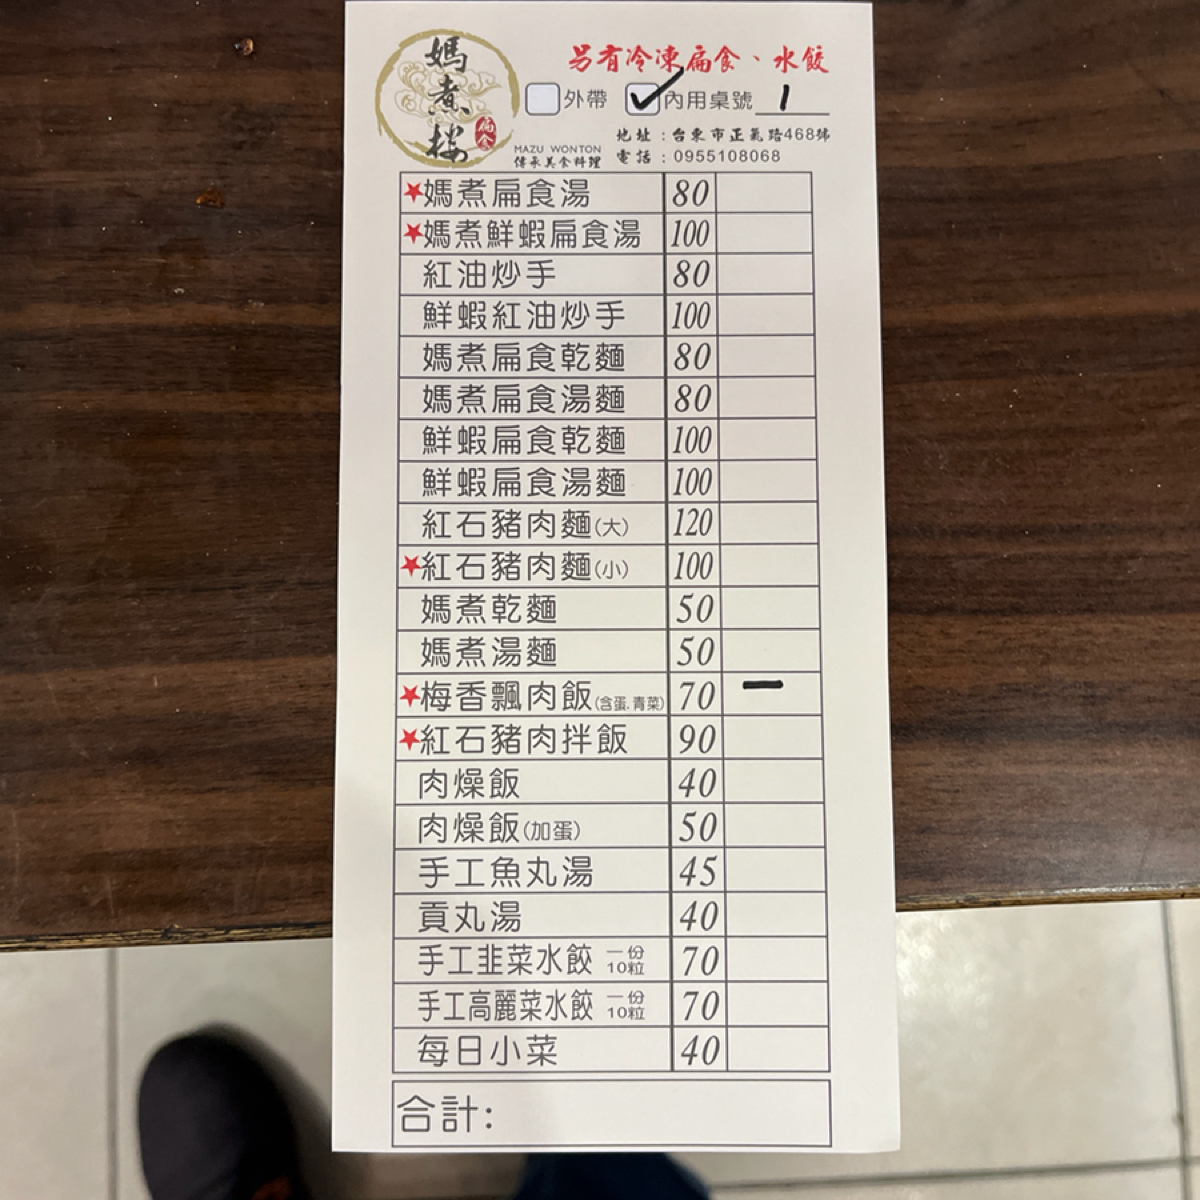 媽煮樓
扁食
MAZU WONTON
傳承美食料理
另有冷凍扁食、水餃
外帶 ✓內用桌號 1
地址：台東市正氣路468號
電話：0955108068
★媽煮扁食湯 80
★媽煮鮮蝦扁食湯 100
紅油炒手 80
鮮蝦紅油炒手 100
媽煮扁食乾麵 80
媽煮扁食湯麵 80
鮮蝦扁食乾麵 100
鮮蝦扁食湯麵 100
紅石豬肉麵(大) 120
★紅石豬肉麵(小) 100
媽煮乾麵 50
媽煮湯麵 50
★梅香飄肉飯(含蛋.青菜) 70 一
★紅石豬肉拌飯 90
肉燥飯 40
肉燥飯(加蛋) 50
手工魚丸湯 45
貢丸湯 40
手工韭菜水餃 一份10粒 70
手工高麗菜水餃 一份10粒 70
每日小菜 40
合計: